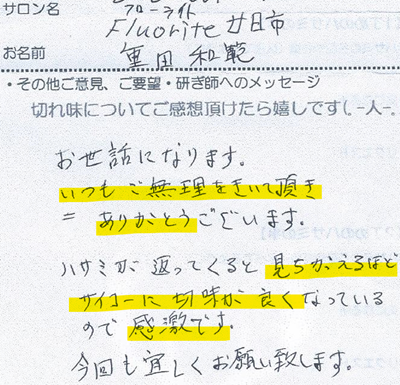 サロン名 フローライト
Fluorite 廿日市
お名前 重田 和範
・その他ご意見、ご要望・研ぎ師へのメッセージ
切れ味についてご感想頂けたら嬉しです(.-人-.
お世話になります。
いつもご無理をきいて頂き
ありがとうございます。
ハサミが返ってくると見ちがえるほど
サイコーに切味が良くなっている
ので感激です。
今回も宜しくお願い致します。